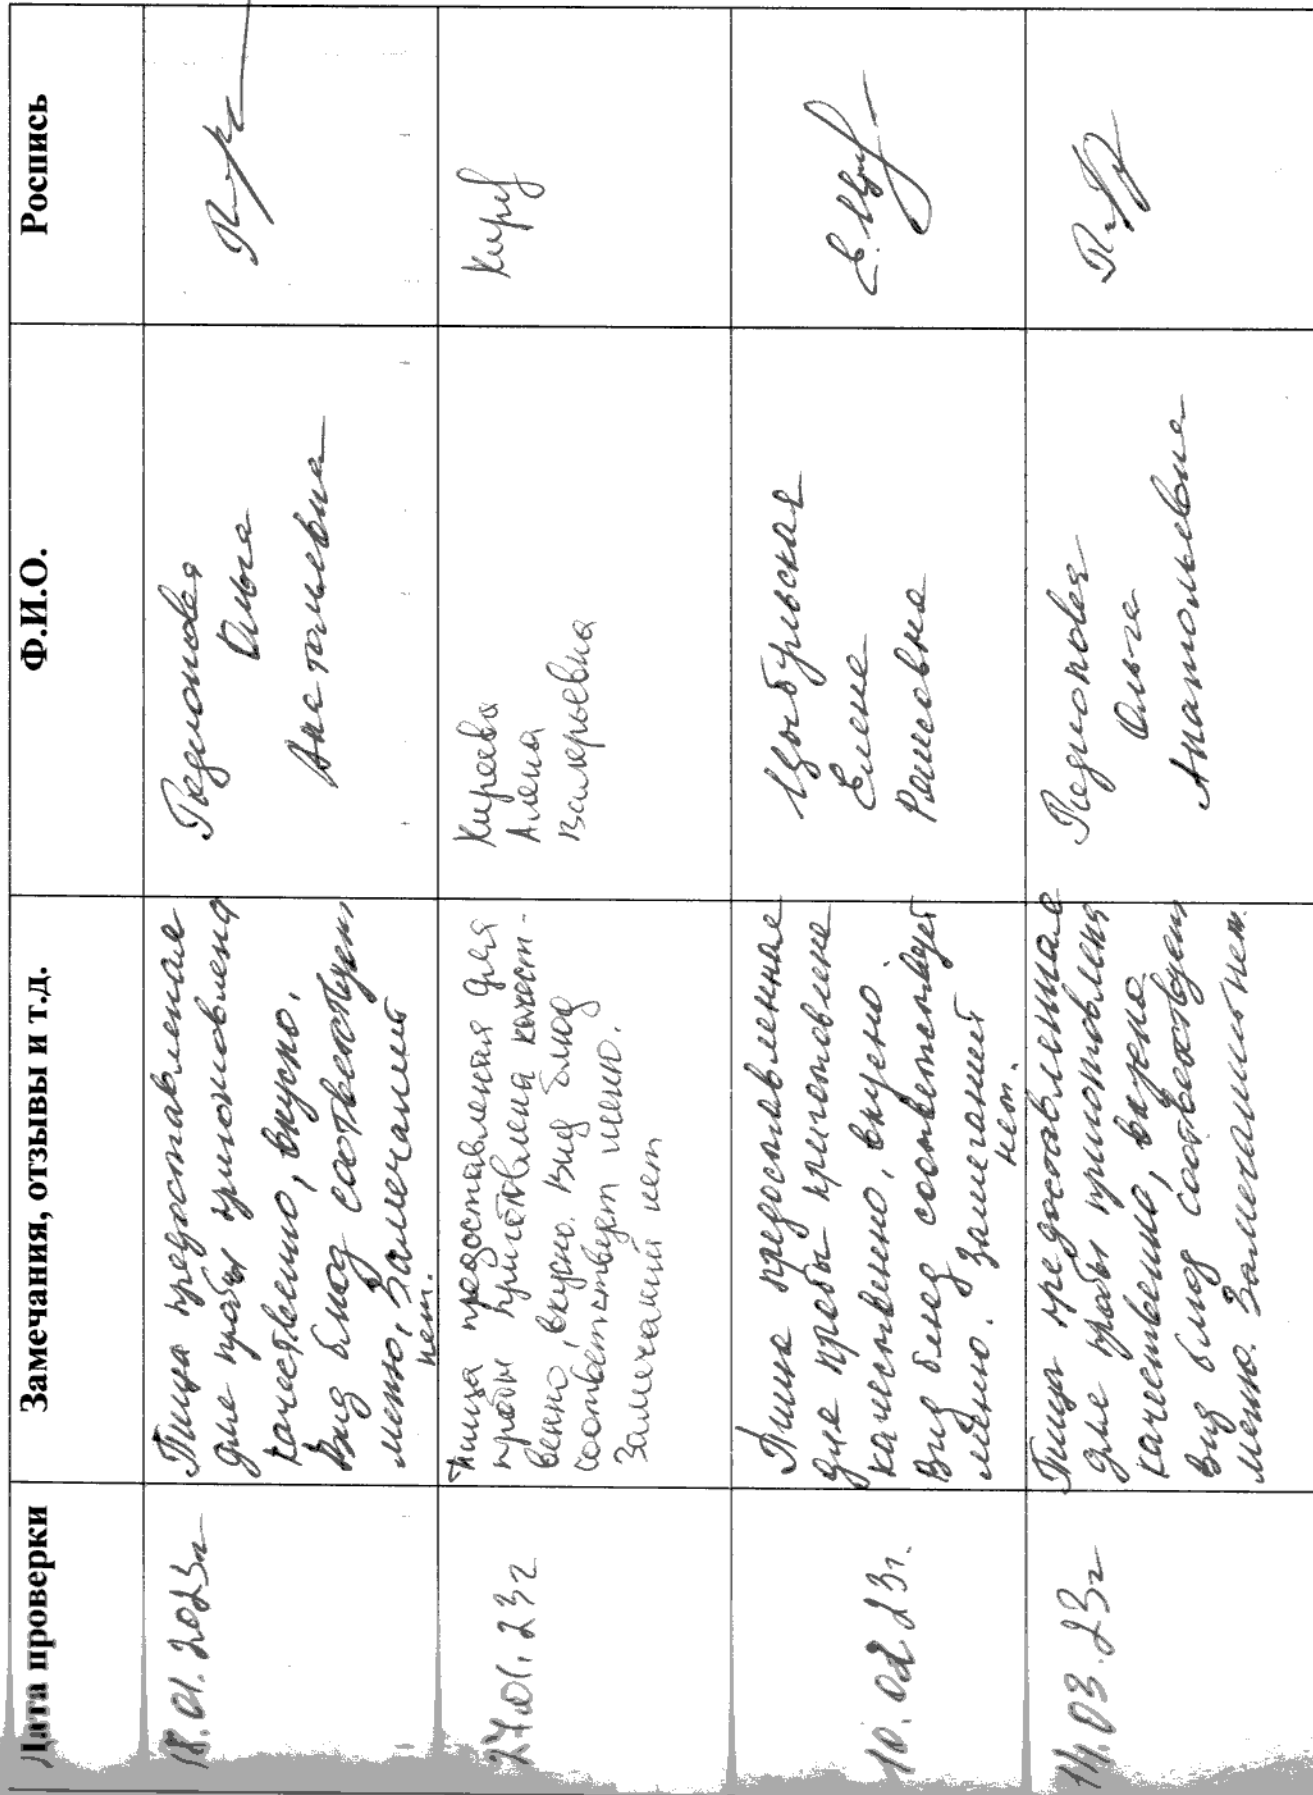 Дата проверки
Замечания, отзывы и т.д.
Ф.И.О.
Роспись
18.01.2023г
Пища предоставленая
для пробы приготовлена
качественно, вкусно.
Вид блюд соответствует
меню. Замечаний
нет.
Ольга
Анатольевна
27.01.23г
Пища предоставленая для
пробы приготовлена качест-
венно, вкусно. Вид блюд
соответствует меню.
Замечаний нет
Киреева
Алена
Валерьевна
Кирев
10.02.23г.
Пища предоставленная
для пробы приготовлена
качественно, вкусно.
Вид блюд соответствует
меню. Замечаний
нет.
Цыбульская
Елена
Раисовна
14.03.23г
Пища предоставленная
для пробы приготовлена
качественно, вкусно
вид блюд соответствует
меню. Замечаний нет.
Ольга
Анатольевна